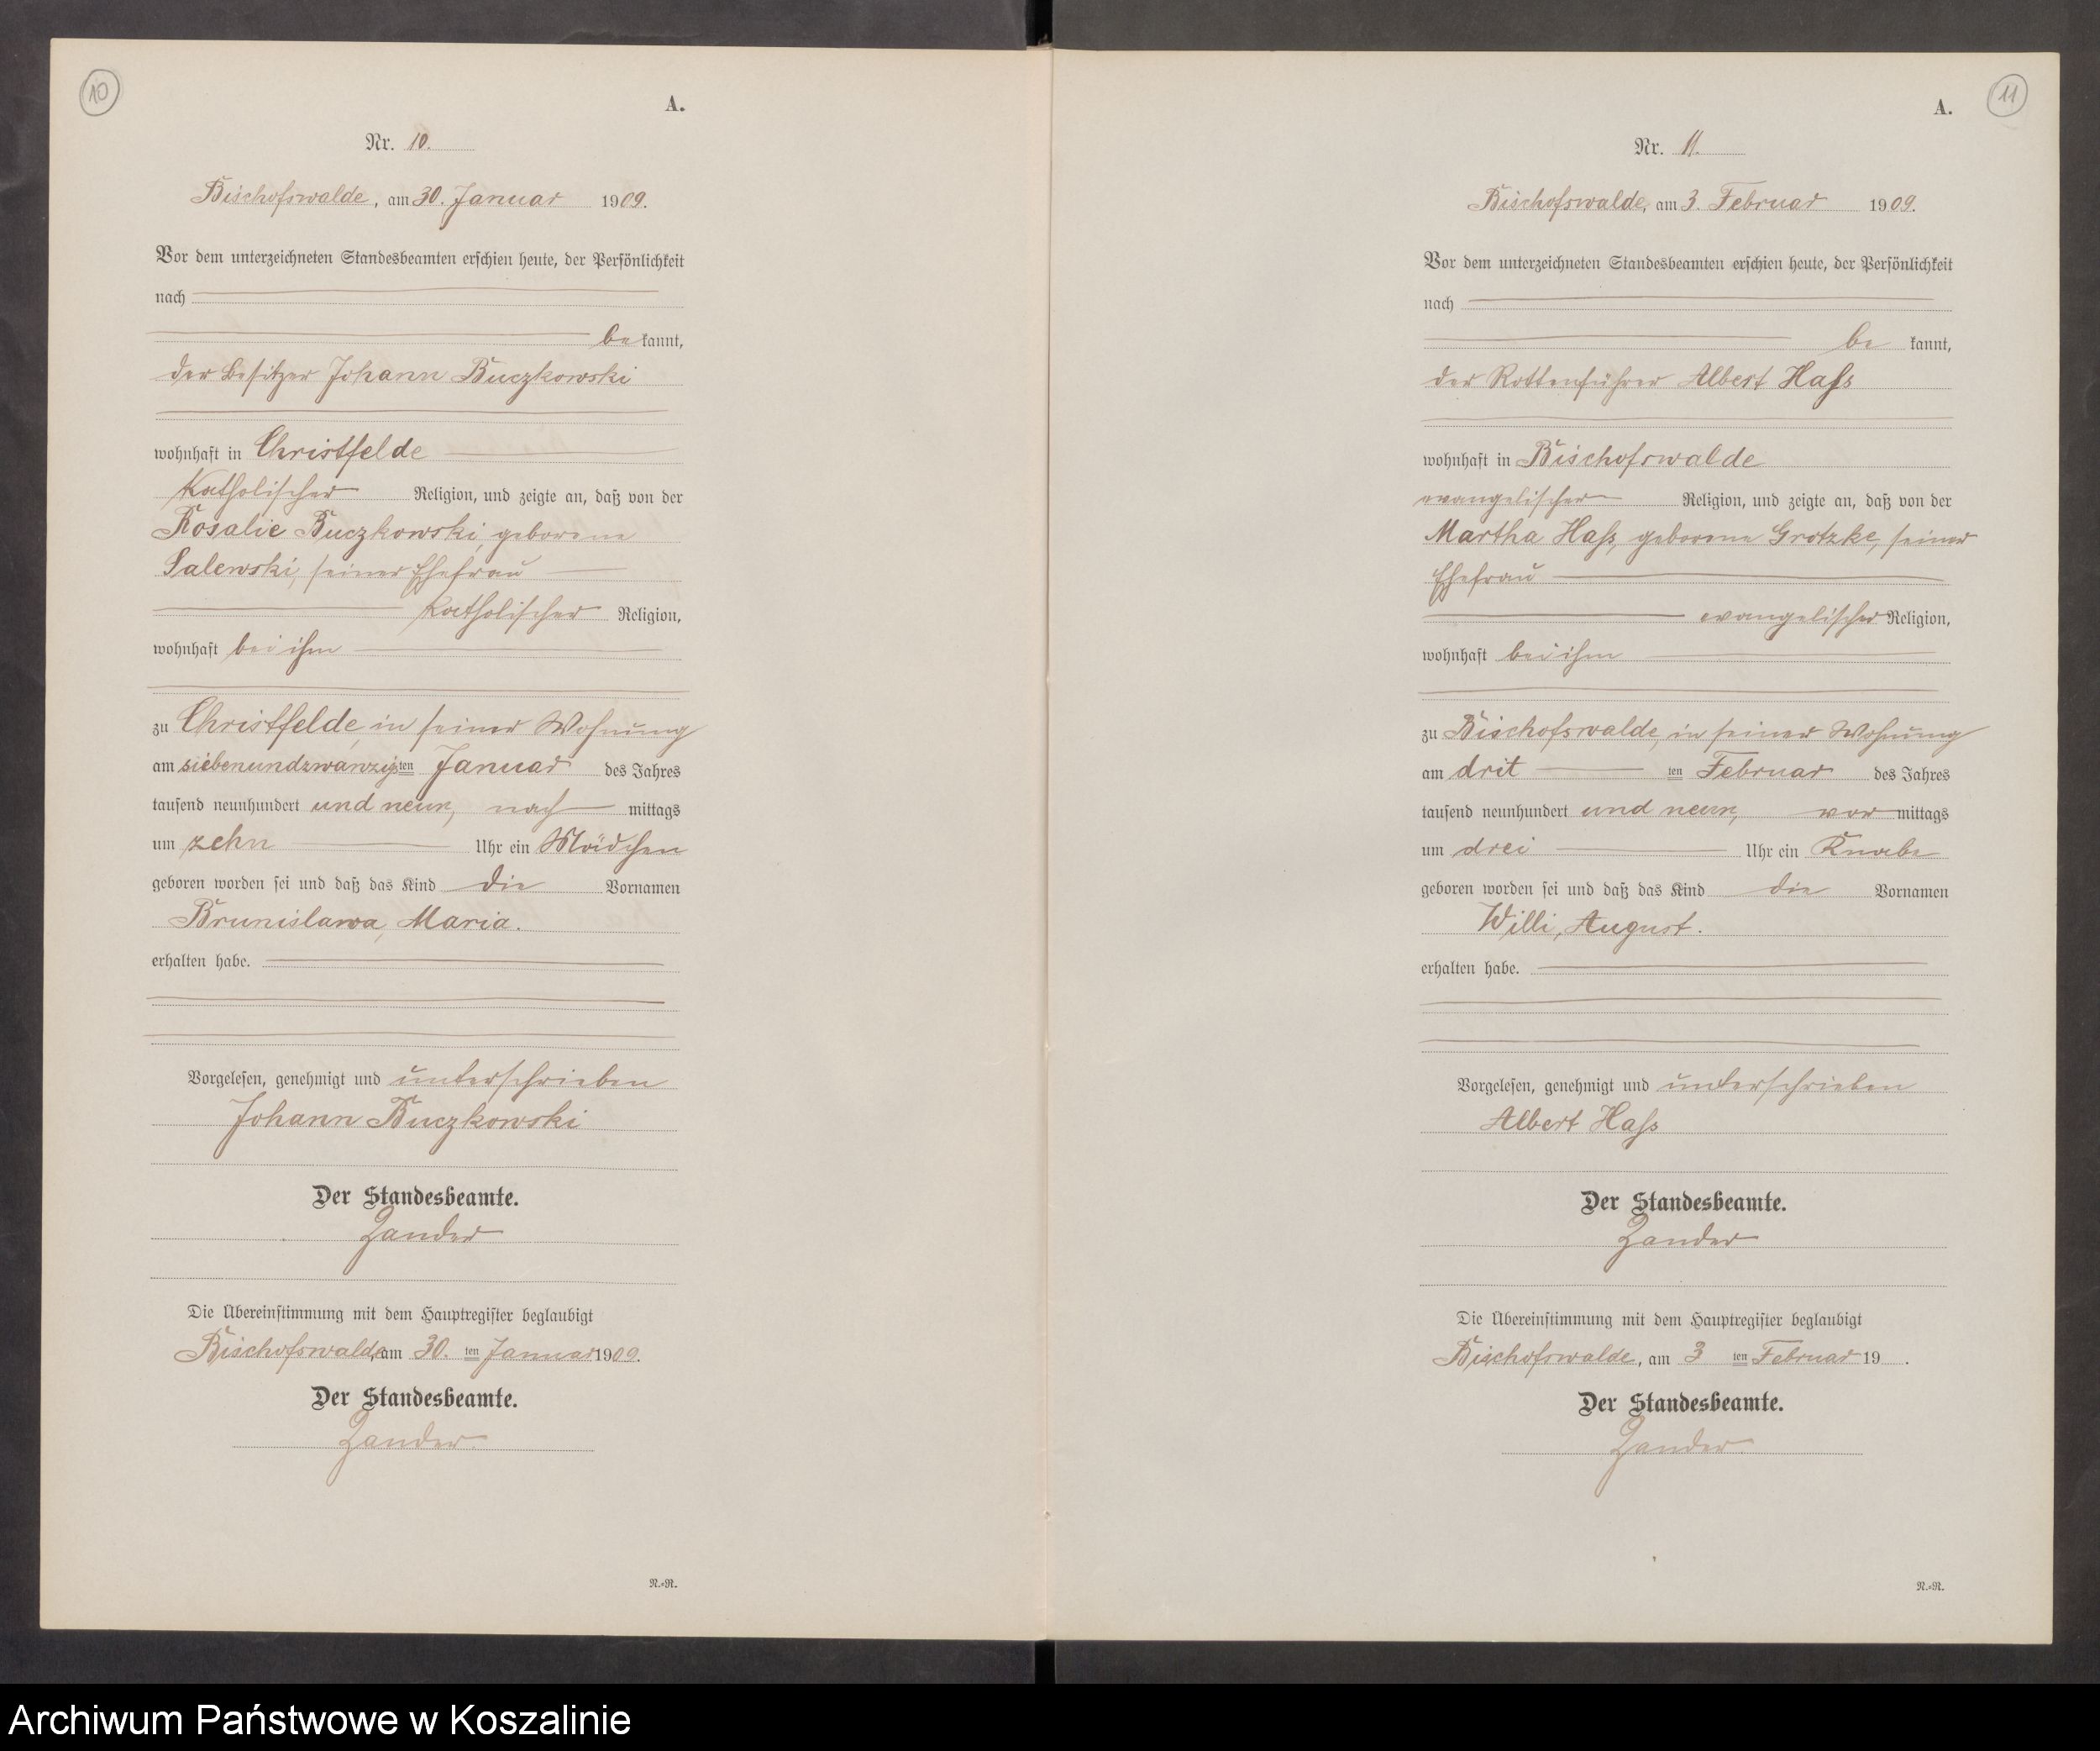 10
A.
Nr. 10.
Bischofswalde, am 30. Januar 1909.
Vor dem unterzeichneten Standesbeamten erschien heute, der Persönlichkeit
nach
be kannt,
der Besitzer Johann Buczkowski
wohnhaft in Christfelde
katholischer Religion, und zeigte an, daß von der
Rosalie Buczkowski, geborene
Salewski, seiner Ehefrau
katholischer Religion,
wohnhaft bei ihm
zu Christfelde, in seiner Wohnung
am siebenundzwanzigten Januar des Jahres
tausend neunhundert und neun, nach mittags
um zehn Uhr ein Mädchen
geboren worden sei und daß das Kind die Vornamen
Brunislawa, Maria.
erhalten habe.
Vorgelesen, genehmigt und unterschrieben
Johann Buczkowski
Der Standesbeamte.
Zander
Die Übereinstimmung mit dem Hauptregister beglaubigt
Bischofswalde, am 30. ten Januar 1909.
Der Standesbeamte.
Zander
N.=N.
11
A.
Nr. 11.
Bischofswalde, am 3. Februar 1909.
Vor dem unterzeichneten Standesbeamten erschien heute, der Persönlichkeit
nach
be kannt,
der Rottenführer Albert Haſs
wohnhaft in Bischofswalde
evangelischer Religion, und zeigte an, daß von der
Martha Haſs, geborene Grotzke, seiner
Ehefrau
evangelischer Religion,
wohnhaft bei ihm
zu Bischofswalde, in seiner Wohnung
am drit ten Februar des Jahres
tausend neunhundert und neun, vor mittags
um drei Uhr ein Knabe
geboren worden sei und daß das Kind die Vornamen
Willi, August.
erhalten habe.
Vorgelesen, genehmigt und unterschrieben
Albert Haſs
Der Standesbeamte.
Zander
Die Übereinstimmung mit dem Hauptregister beglaubigt
Bischofswalde, am 3 ten Februar 19 .
Der Standesbeamte.
Zander
N.=N.
Archiwum Państwowe w Koszalinie